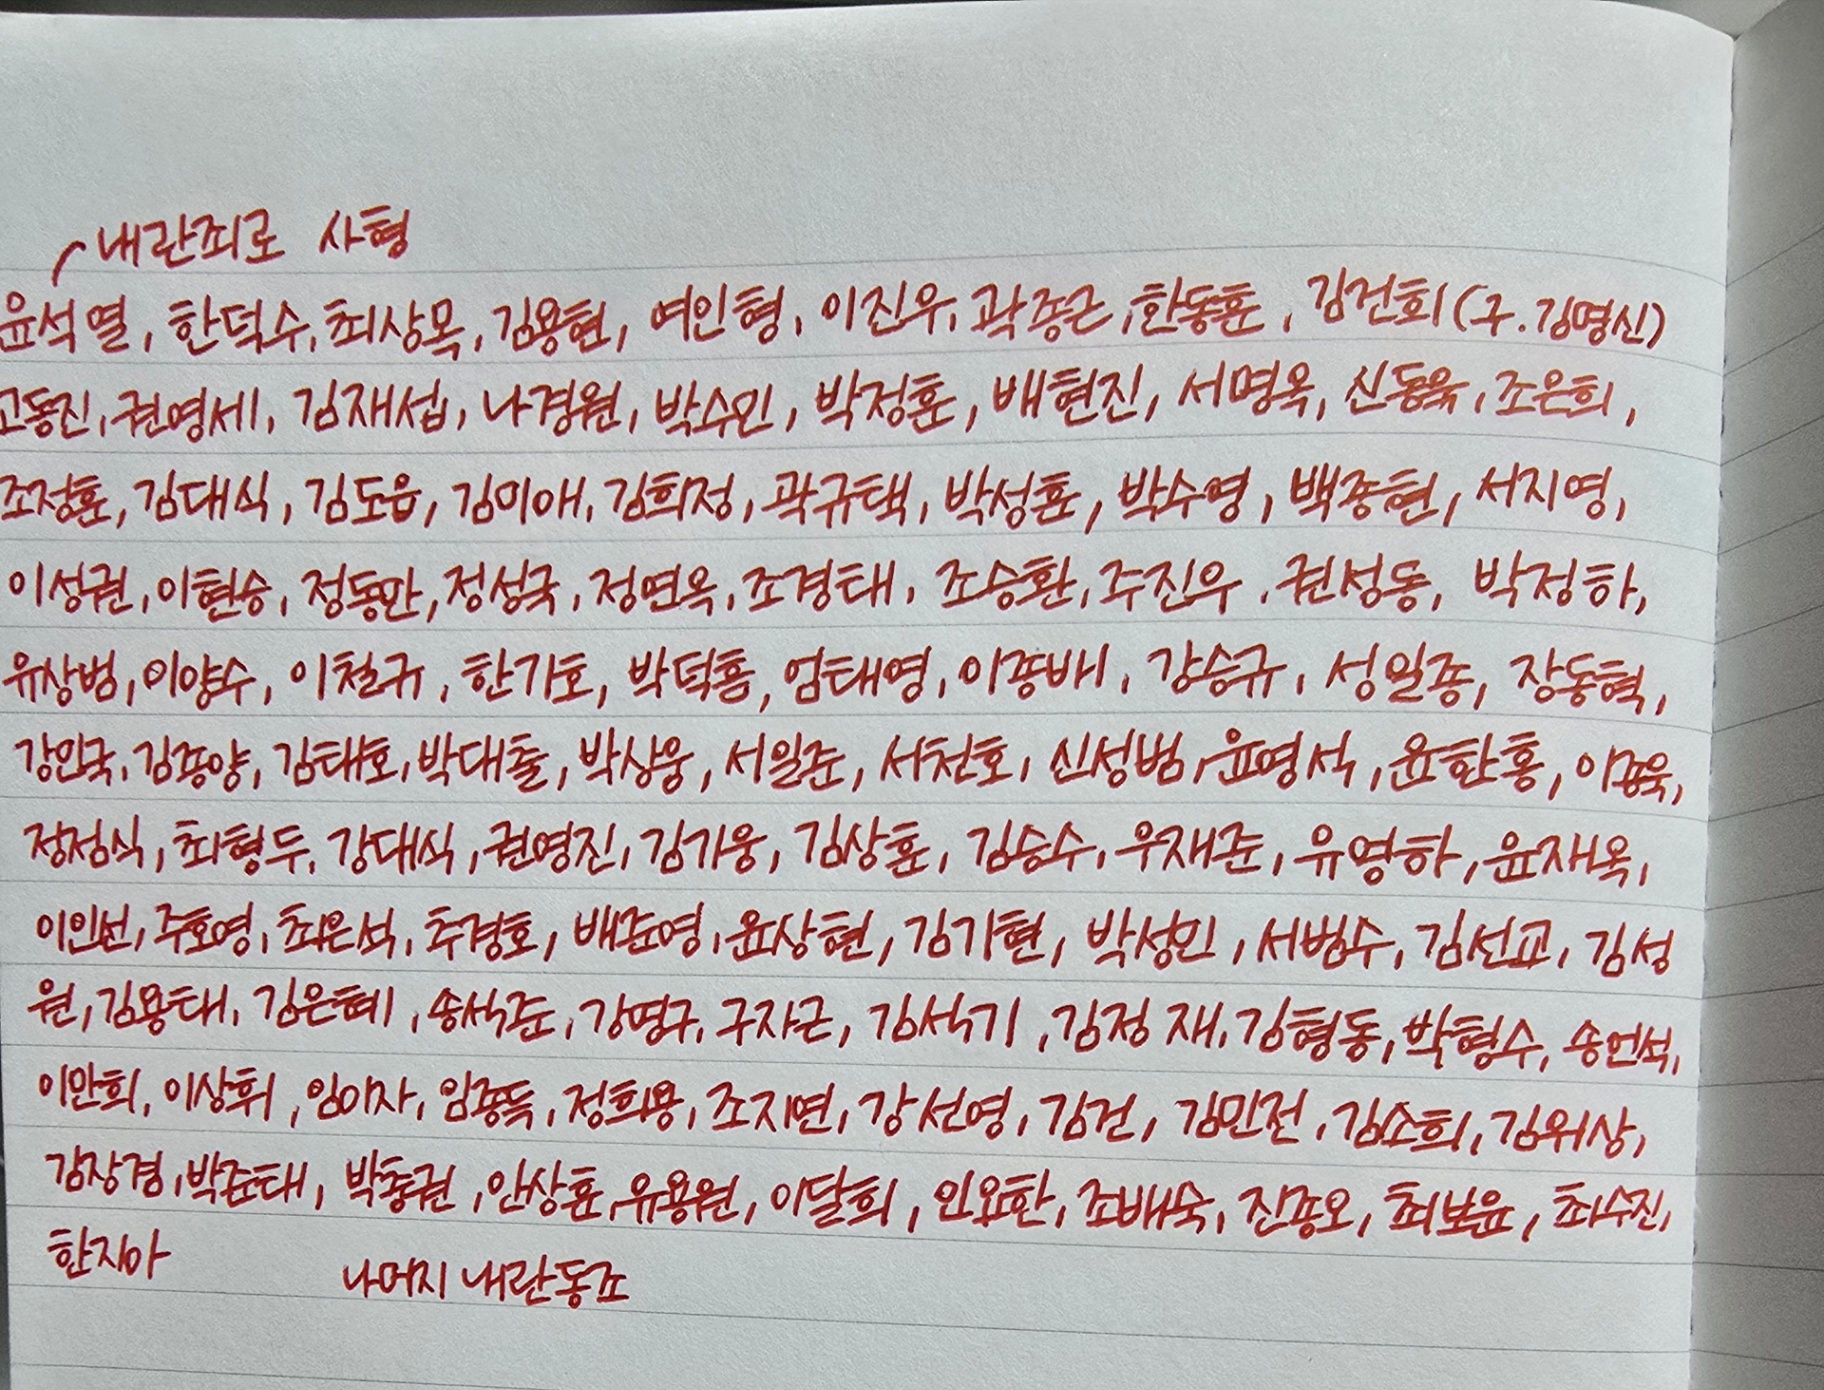 내란죄로 사형
윤석열, 한덕수, 최상목, 김용현, 여인형, 이진우, 곽종근, 한동훈, 김건희(구.김명신)
고동진, 권영세, 김재섭, 나경원, 박수민, 박정훈, 배현진, 서명옥, 신동욱, 조은희,
조정훈, 김대식, 김도읍, 김미애, 김희정, 곽규택, 박성훈, 박수영, 백종현, 서지영,
이성권, 이헌승, 정동만, 정성국, 정연욱, 조경태, 조승환, 주진우, 권성동, 박정하,
유상범, 이양수, 이철규, 한기호, 박덕흠, 엄태영, 이종배, 강승규, 성일종, 장동혁,
강민국, 김종양, 김태호, 박대출, 박상웅, 서일준, 서천호, 신성범, 윤영석, 윤한홍, 이종욱,
정점식, 최형두, 강대식, 권영진, 김기웅, 김상훈, 김승수, 우재준, 유영하, 윤재옥,
이인선, 주호영, 최은석, 추경호, 배준영, 윤상현, 김기현, 박성민, 서범수, 김선교, 김성
원, 김용태, 김은혜, 송석준, 강명구, 구자근, 김석기, 김정재, 김형동, 박형수, 송언석,
이만희, 이상휘, 임이자, 임종득, 정희용, 조지연, 강선영, 김건, 김민전, 김소희, 김위상,
김장겸, 박준태, 박충권, 안상훈, 유용원, 이달희, 인요한, 조배숙, 진종오, 최보윤, 최수진,
한지아 나머지 내란동조